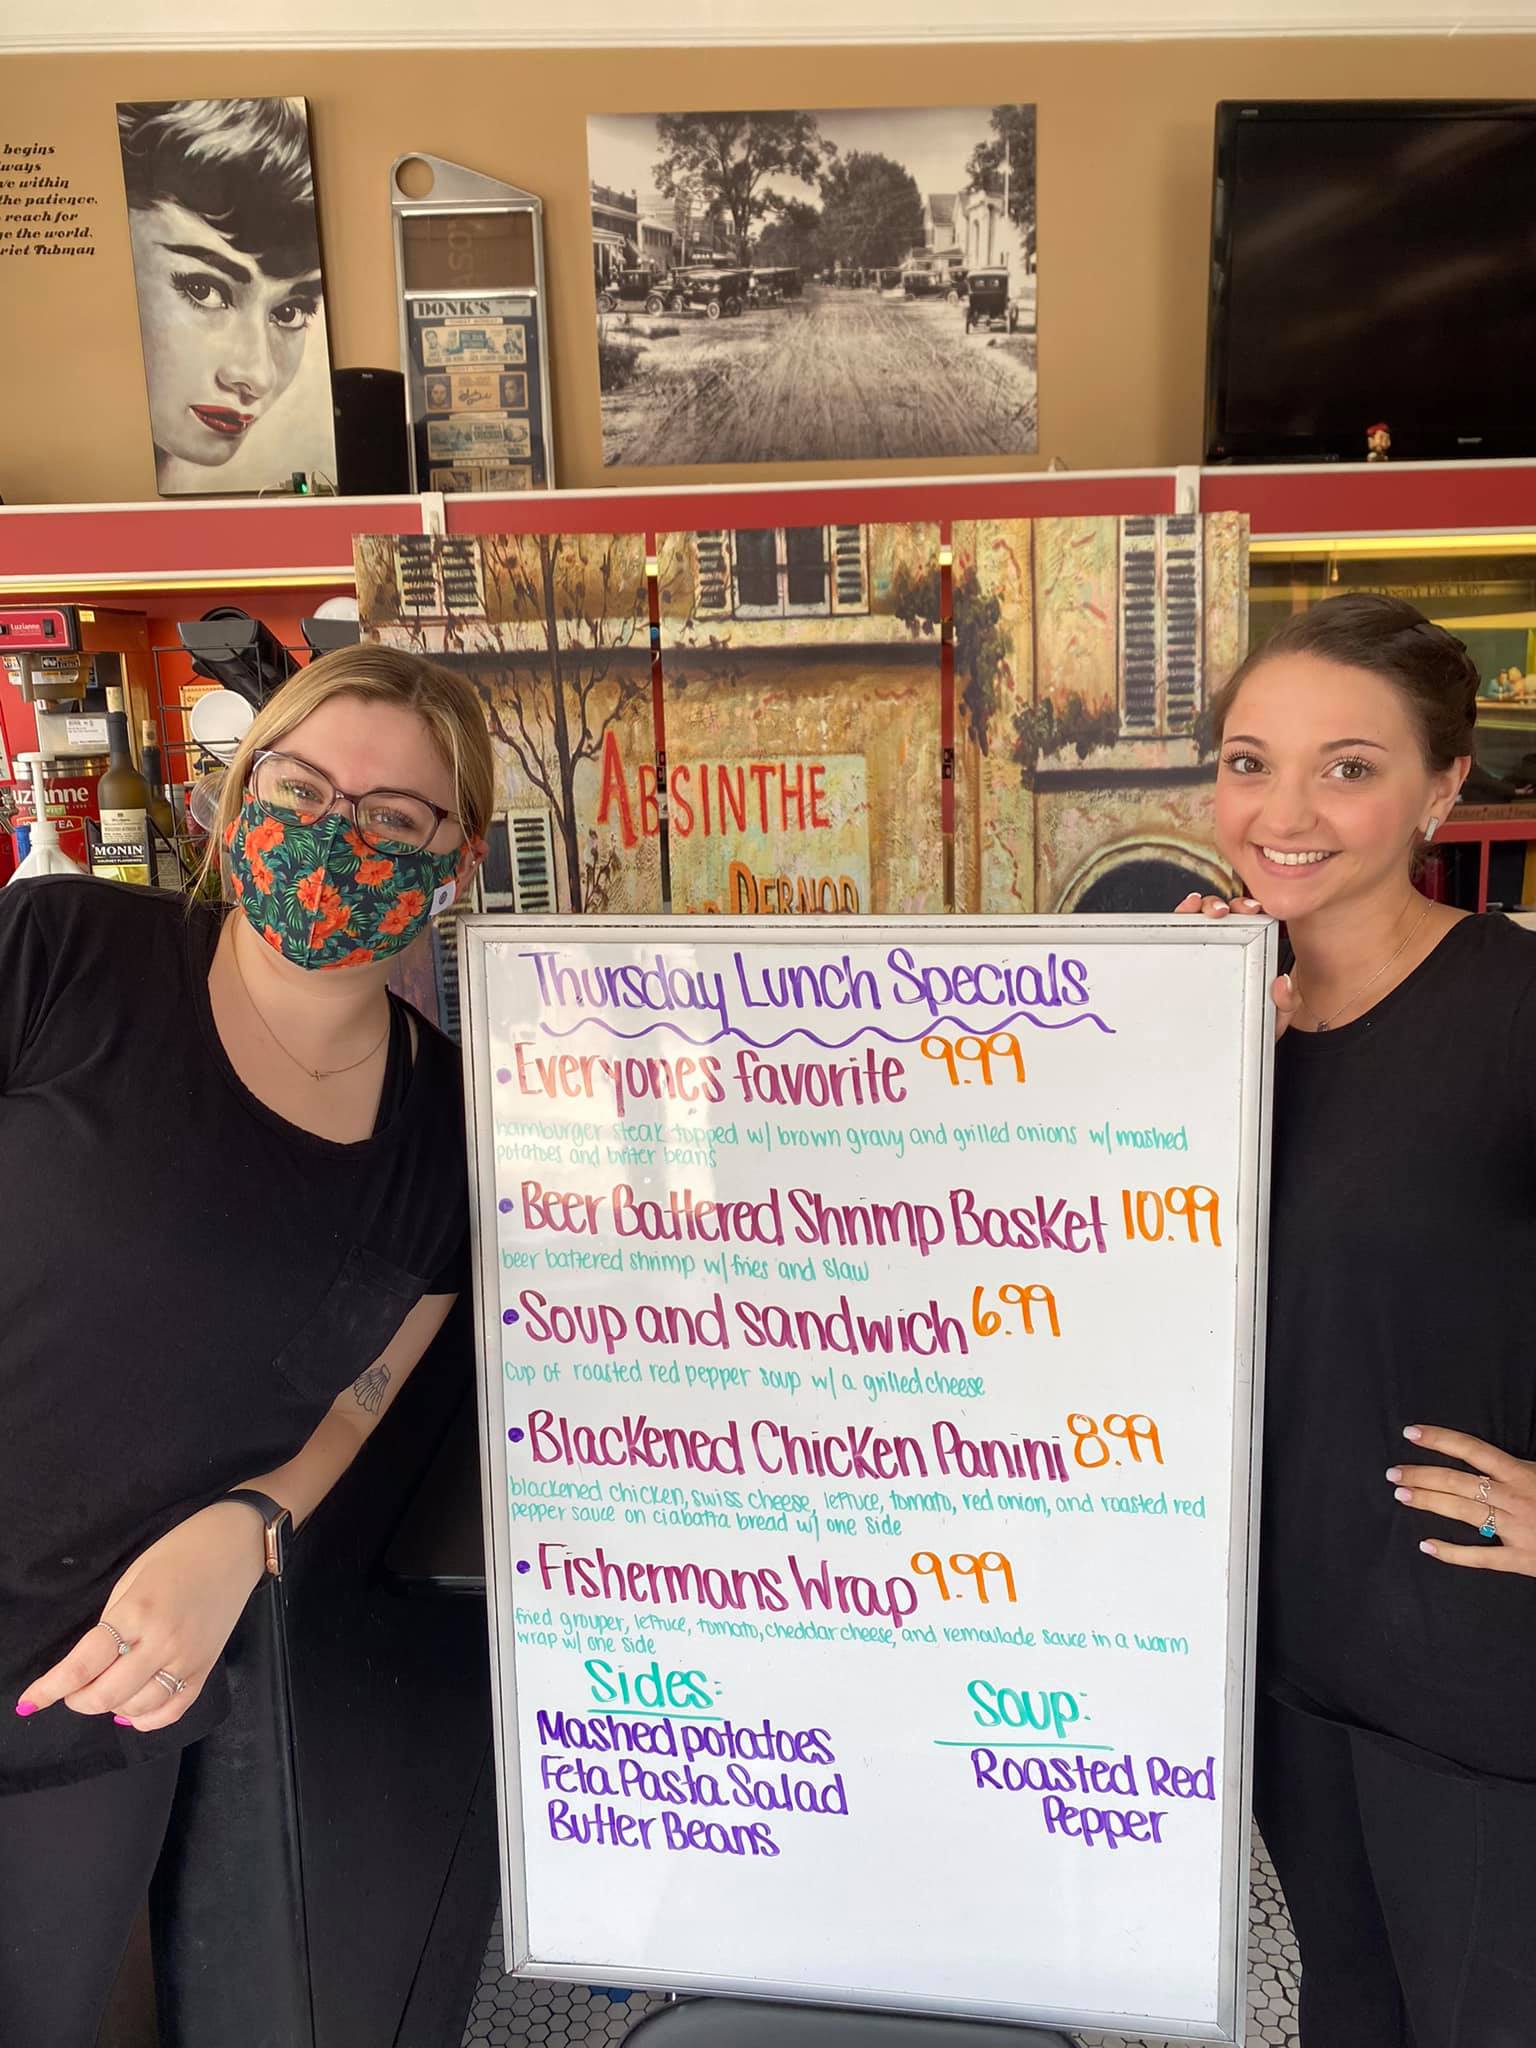 begins
lways
ve within
the patience,
reach for
ge the world.
riet Tubman
DONK'S
Luzianne
uzianne
TEA
MONIN
ABSINTHE
PERNOD
Thursday Lunch Specials
• Everyones favorite 9.99
hamburger steak topped w/ brown gravy and grilled onions w/ mashed
potatoes and butter beans
• Beer Battered Shrimp Basket 10.99
beer battered shrimp w/ fries and slaw
• Soup and sandwich 6.99
cup of roasted red pepper soup w/ a grilled cheese
• Blackened Chicken Panini 8.99
blackened chicken, swiss cheese, lettuce, tomato, red onion, and roasted red
pepper sauce on ciabatta bread w/ one side
• Fishermans Wrap 9.99
fried grouper, lettuce, tomato, cheddar cheese, and remoulade sauce in a warm
wrap w/ one side
Sides:
Mashed potatoes
Feta Pasta Salad
Butter Beans
Soup:
Roasted Red
Pepper